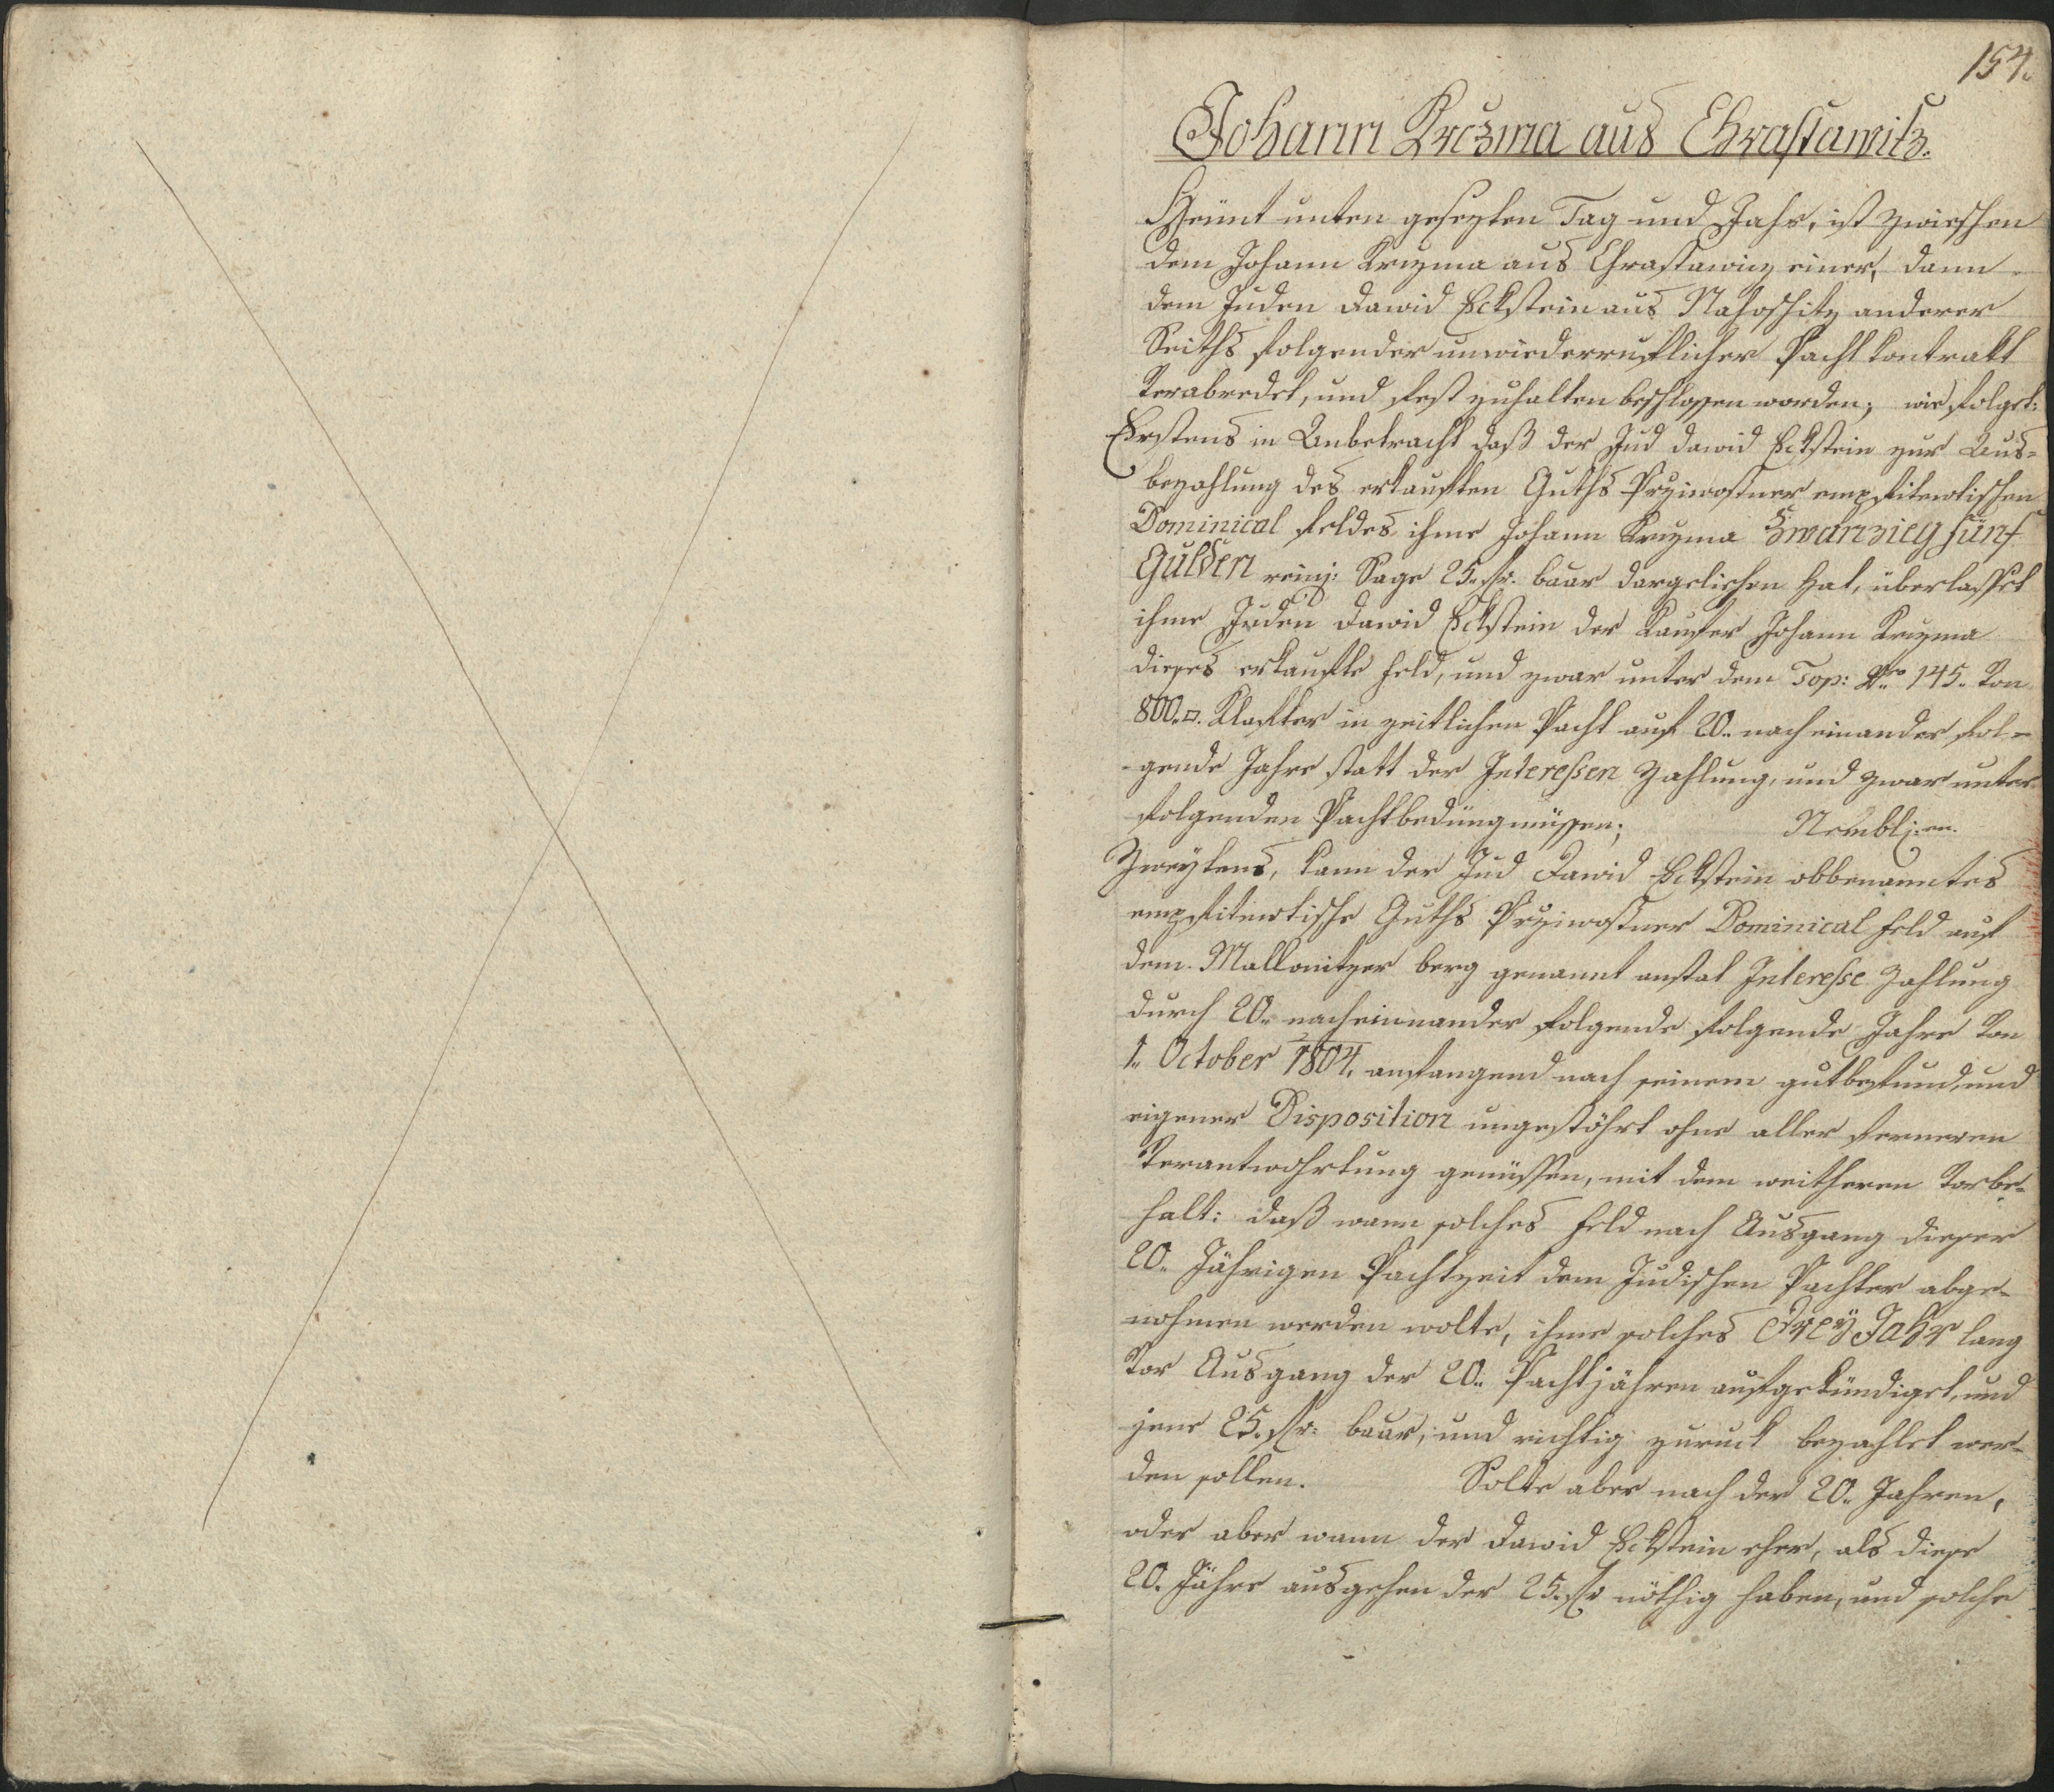 154.
Johann Krczma aus Chrastawitz.
Heünt unten gesezten Tag und Jahr, ist zwieschen
dem Johann Kruzma aus Chrastawicz einer, dann
dem Juden Dawid Eckstein aus Nahoschitz anderer
Seiths folgender unwiederruflicher Pacht Contrakt
Verabredet, und fest zuhalten beschlossen worden; wie folget:
Erstens in Anbetracht daß der Jud Dawid Eckstein zur Aus=
bezahlung des erkauften Guths Przivostner emphitevtischen
Dominical feldes, ihme Johann Kruzma Zwanzieg fünf
Gulden reinj: Sage 25. fr. baar dargeliehen hat, überlasset
ihme Juden Dawid Eckstein der Kaufer Johann Kruzma
dieses erkaufte Feld, und zwar unter dem Top: Nro 145. Von
800.□. Klafter in zeitlichen Pacht auf 20. nach einander fol=
=gende Jahre statt der Interessen Zahlung, und zwar unter
folgenden Pachtbedüngnüssen; Nembl:en.
Zweytens, kann der Jud Dawid Eckstein obbenanntes
emphitevtische Guths Przivostner Dominical Feld auf
dem Mallonitzer berg genannt anstat Interesse Zahlung
durch 20. nach einnander folgende folgende Jahre Von
1. October 1804. anfangend nach seinem gutbefund, und
eigener Disposition ungestöhrt ohne aller ferneren
Verantwohrtung genüssen, mit dem weitheren Vorbe=
halt: daß wann solches Feld nach Ausgang dieser
20. Jährigen Pachtzeit dem Judischen Pachter abge=
nohmen werden wolte, ihme solches Drey Jahr lang
Vor Ausgang der 20. Pachtjähren aufgekündiget, und
jene 25. fr: baar, und richtig zuruck bezahlet wer=
den sollen. Solte aber nach der 20. Jahren,
oder aber wann der Dawid Eckstein eher, als diese
20. Jähre ausgehen der 25. fr nöthig haben, und solche